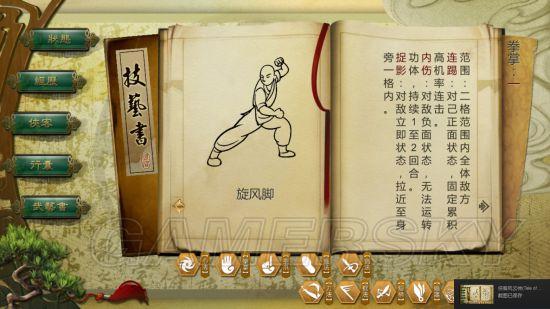 狀態
經歷
俠客
行囊
武藝書
技藝書
旋风脚
拳掌：一
范围：二格范围内全体敌方
连踢：对己正面状态，固定累积
高机率连击。
内伤：对敌负面状态，无法运转
功体，持续1至2回合。
捉影：对敌立即状态，拉近至身
旁一格内。
GAMERSKY
截图已保存